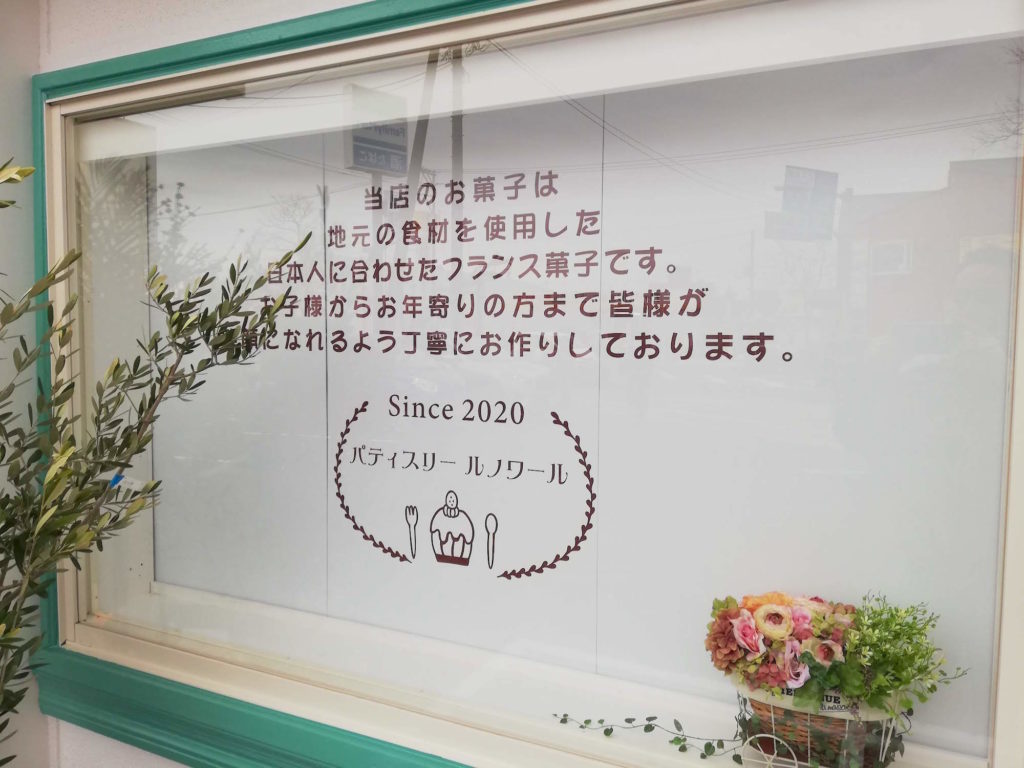 当店のお菓子は
地元の食材を使用した
日本人に合わせたフランス菓子です。
お子様からお年寄りの方まで皆様が
になれるよう丁寧にお作りしております。
Since 2020
パティスリー ルノワール